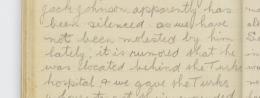 Jack Johnson apparently has
been silenced as we have
not been molested by him
lately, it is rumored that he
was located behind the Turks
hospital & we gave the Turks